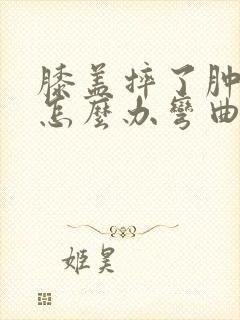 膝盖摔了肿
怎麼办弯曲
姬昊